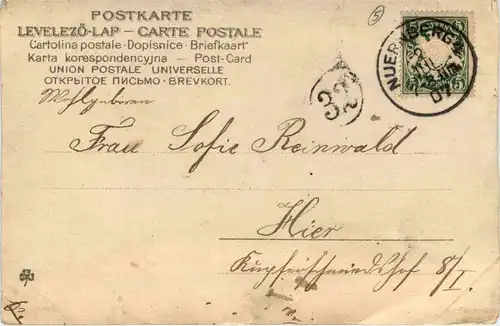 POSTKARTE
LEVELEZŐ-LAP — CARTE POSTALE
Cartolina postale · Dopisnice · Briefkaart
Karta korespondencyjna — Post-Card
UNION POSTALE UNIVERSELLE
ОТКРЫТОЕ ПИСЬМО · BREVKORT.
5
NUERNBERG 2
07
5
5
32
Wohlgeboren
Frau Sofie Reinwald
Hier
Kupferschmiedshof 8/I.